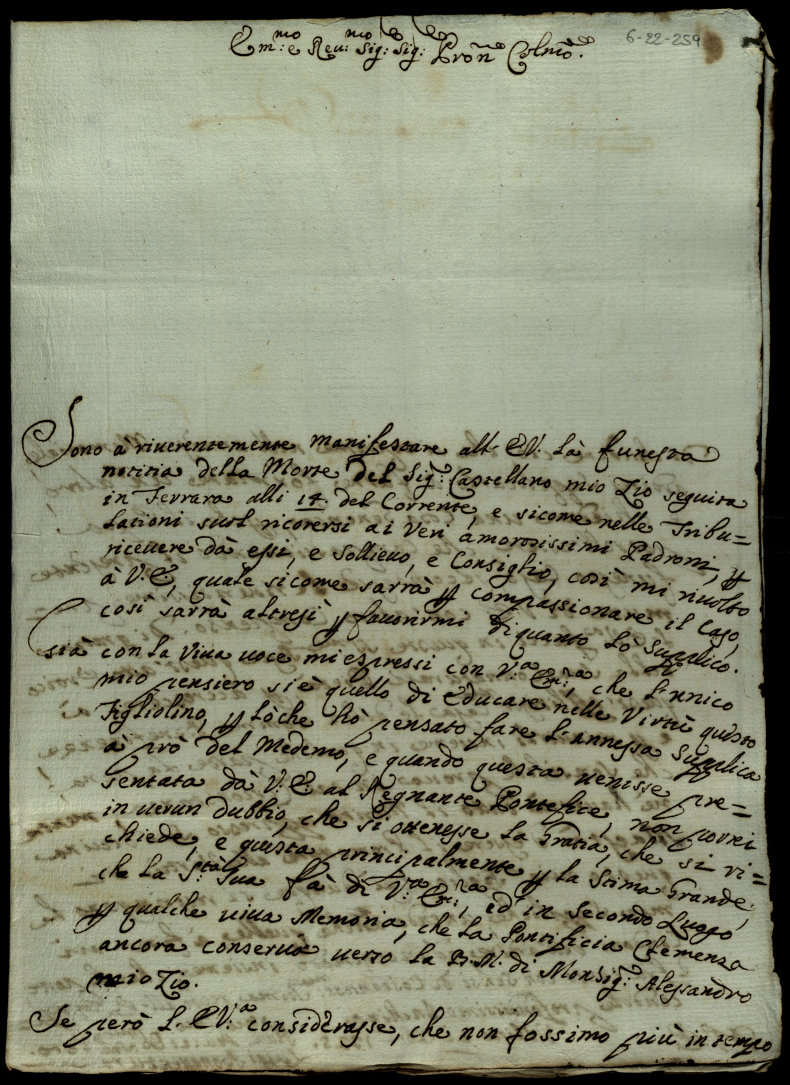 6-22-259
Em:mo e Reu:mo Sig:r Sig:r Pron Colmo
Sono à riuerentemente manifestare all' EV. la funesta
notitia della Morte del Sig.r Castellano mio Zio seguita
in Ferrara alli 14. del Corrente, e sicome nelle Tribu=
lationi suol ricorersi ai Veri amorosissimi Padroni, p
riceuere dà essi, e Sollieuo, e Consiglio, così mi riuolto
à V.E, quale sicome sarrà p compassionare il Caso,
così sarrà altresì p fauorirmi diquanto Lò Supplico.
Già con la viua uoce mi espressi con V.a Em:a, che l'unico
mio pensiero si è quello di educare nelle Virtù questo
Figliolino, p Lòche hò pensato fare l'annessa Supplica
à prò del Medemo, e quando questa uenisse pre=
sentata dà V.E. al Regnante Pontefice, non porrei
in uerun dubbio, che si ottenesse la Gratia, che si ri=
chiede, e questa principalmente p la Stima Grande,
che la S.tà Sua fà di V.a Em:a, ed in secondo Luogo
p qualche uiua Memoria, che la Pontificia Clemenza
ancora conserua uerso la B.M. di Monsig.r Alessandro
mio Zio.
Se però l' EV.a considerasse, che non fossimo più in tempo